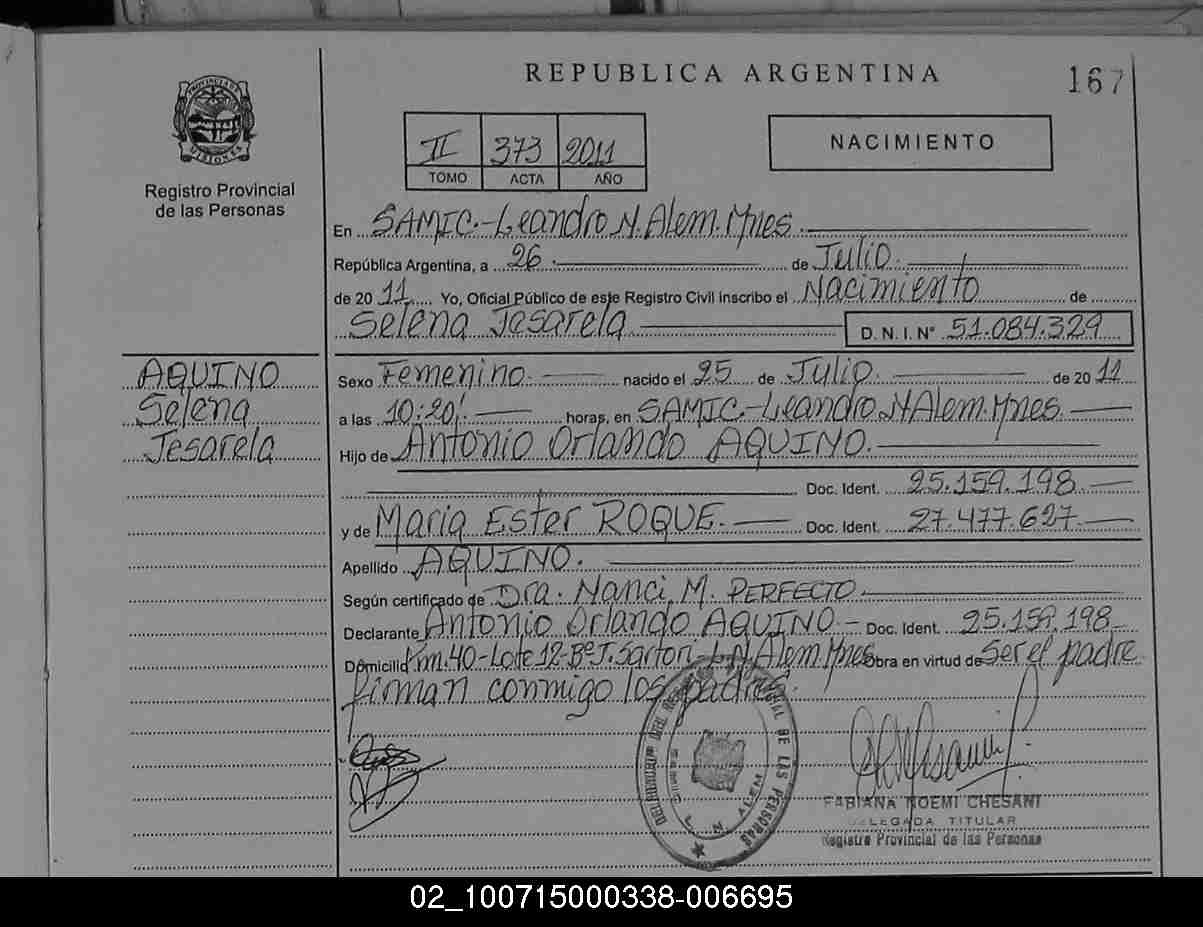 REPUBLICA ARGENTINA
167
PROVINCIA DE
MISIONES
Registro Provincial
de las Personas
II 373 2011
TOMO ACTA AÑO
NACIMIENTO
En SAMIC.-Leandro N. Alem. Mnes.
República Argentina, a 26 de Julio
de 20 11 Yo, Oficial Público de este Registro Civil inscribo el Nacimiento de
Selena Jesarela D.N.I.Nº 51.084.329
AQUINO
Selena
Jesarela
Sexo Femenino nacido el 25 de Julio de 20 11
a las 10:20' horas, en SAMIC.-Leandro N. Alem. Mnes.
Hijo de Antonio Orlando AQUINO.
Doc. Ident. 25.159.198
y de Maria Ester ROQUE. Doc. Ident. 27.477.627
Apellido AQUINO.
Según certificado de Dra. Nanci M. PERFECTO.
Declarante Antonio Orlando AQUINO - Doc. Ident. 25.159.198
Domicilio Km.40-Lote 12-Bº J. Sartori-L.N. Alem Mnes Obra en virtud de Ser el padre
firman conmigo los padres.
DEL REGISTRO PROVINCIAL DE LAS PERSONAS
L. N. ALEM
FABIANA NOEMI CHESANI
DELEGADA TITULAR
Registro Provincial de las Personas
02_100715000338-006695